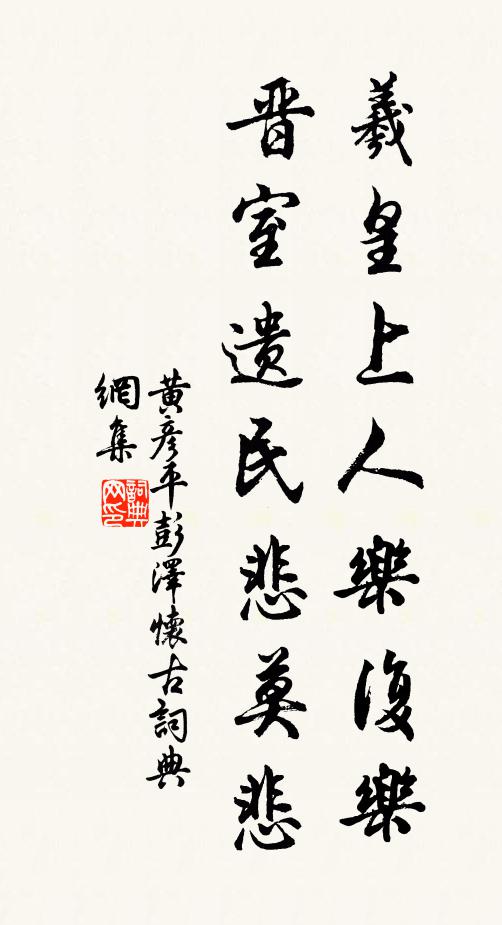 羲皇上人樂復樂
晉室遺民悲莫悲
黃彥平彭澤懷古詞典
網集
詞典
网印